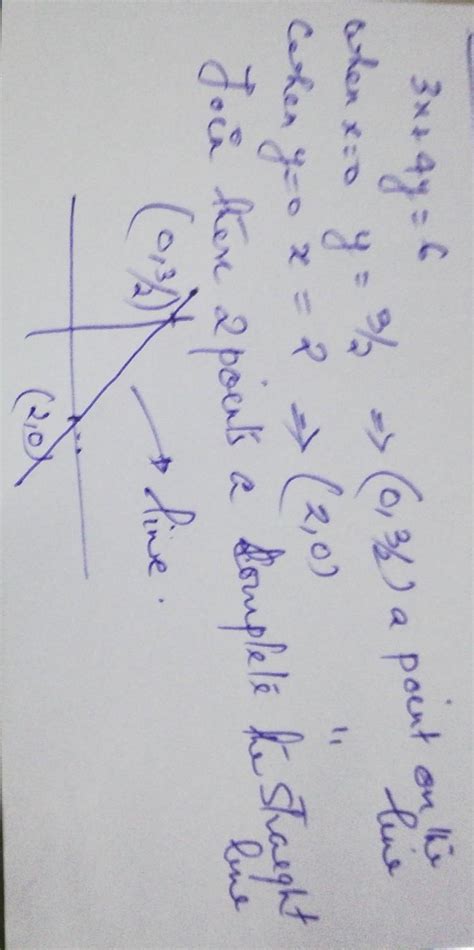 3x+4y=6
when x=0 y = 3/2 ⇒ (0, 3/2) a point on the line
when y=0 x = 2 ⇒ (2,0) "
Join these 2 points a complete the straight line
(0, 3/2)
→ line.
(2,0)